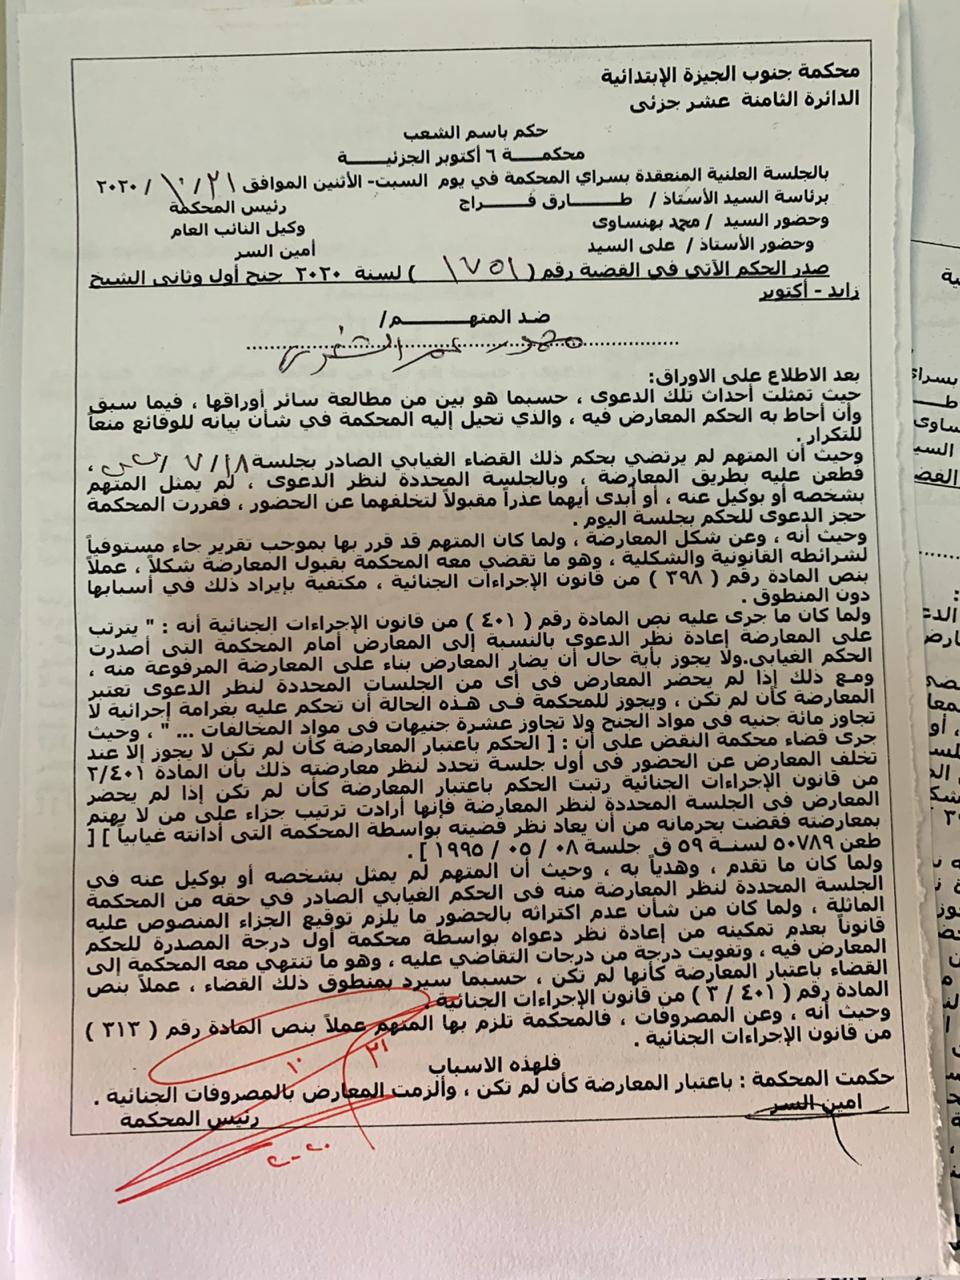 محكمة جنوب الجيزة الإبتدائية
الدائرة الثامنة عشر جزئى
حكم باسم الشعب
محكمـــة ٦ أكتوبر الجزئيـــة
بالجلسة العلنية المنعقدة بسراي المحكمة في يوم السبت- الأثنين الموافق ٣١/ ١٠/ ٢٠٢٠
برئاسة السيد الأستاذ / طـــارق فـــراج رئيس المحكمة
وحضور السيد / محمد بهنساوى وكيل النائب العام
وحضور الأستاذ/ على السيد أمين السر
صدر الحكم الآتي في القضية رقم ( ١٧٥١ ) لسنة ٢٠٢٠ جنح أول وثانى الشيخ
زايد - أكتوبر
ضد المتهـــــم/
محمود عمر
بعد الاطلاع على الاوراق:
حيث تمثلت أحداث تلك الدعوى ، حسبما هو بين من مطالعة سائر أوراقها ، فيما سبق
وأن أحاط به الحكم المعارض فيه ، والذي تحيل إليه المحكمة في شأن بيانه للوقائع منعاً
للتكرار .
وحيث أن المتهم لم يرتضي بحكم ذلك القضاء الغيابي الصادر بجلسة ١٨/ ٧ / ،
فطعن عليه بطريق المعارضة ، وبالجلسة المحددة لنظر الدعوى ، لم يمثل المتهم
بشخصه أو بوكيل عنه ، أو أبدى أيهما عذراً مقبولاً لتخلفهما عن الحضور ، فقررت المحكمة
حجز الدعوى للحكم بجلسة اليوم .
وحيث أنه ، وعن شكل المعارضة ، ولما كان المتهم قد قرر بها بموجب تقرير جاء مستوفياً
لشرائطه القانونية والشكلية ، وهو ما تقضي معه المحكمة بقبول المعارضة شكلاً ، عملاً
بنص المادة رقم ( ٣٩٨ ) من قانون الإجراءات الجنائية ، مكتفية بإيراد ذلك في أسبابها
دون المنطوق .
ولما كان ما جرى عليه نص المادة رقم ( ٤٠١ ) من قانون الإجراءات الجنائية أنه : " يترتب
على المعارضة إعادة نظر الدعوى بالنسبة إلى المعارض أمام المحكمة التى أصدرت
الحكم الغيابى.ولا يجوز بأية حال أن يضار المعارض بناء على المعارضة المرفوعة منه ،
ومع ذلك إذا لم يحضر المعارض فى أى من الجلسات المحددة لنظر الدعوى تعتبر
المعارضة كأن لم تكن ، ويجوز للمحكمة فى هذه الحالة أن تحكم عليه بغرامة إجرائية لا
تجاوز مائة جنيه فى مواد الجنح ولا تجاوز عشرة جنيهات فى مواد المخالفات ... " ، وحيث
جرى قضاء محكمة النقض على أن : [ الحكم باعتبار المعارضة كأن لم تكن لا يجوز إلا عند
تخلف المعارض عن الحضور فى أول جلسة تحدد لنظر معارضته ذلك بأن المادة ٢/٤٠١
من قانون الإجراءات الجنائية رتبت الحكم باعتبار المعارضة كأن لم تكن إذا لم يحضر
المعارض فى الجلسة المحددة لنظر المعارضة فإنها أرادت ترتيب جزاء على من لا يهتم
بمعارضته فقضت بحرمانه من أن يعاد نظر قضيته بواسطة المحكمة التى أدانته غيابياً ] [
طعن ٥٠٧٨٩ لسنة ٥٩ ق جلسة ٠٨ / ٠٥ / ١٩٩٥ ] .
ولما كان ما تقدم ، وهدياً به ، وحيث أن المتهم لم يمثل بشخصه أو بوكيل عنه في
الجلسة المحددة لنظر المعارضة منه فى الحكم الغيابي الصادر في حقه من المحكمة
الماثلة ، ولما كان من شأن عدم اكتراثه بالحضور ما يلزم توقيع الجزاء المنصوص عليه
قانوناً بعدم تمكينه من إعادة نظر دعواه بواسطة محكمة أول درجة المصدرة للحكم
المعارض فيه ، وتفويت درجة من درجات التقاضي عليه ، وهو ما تنتهي معه المحكمة إلى
القضاء باعتبار المعارضة كأنها لم تكن ، حسبما سيرد بمنطوق ذلك القضاء ، عملاً بنص
المادة رقم ( ٤٠١ / ٢ ) من قانون الإجراءات الجنائية.
وحيث أنه ، وعن المصروفات ، فالمحكمة تلزم بها المتهم عملاً بنص المادة رقم ( ٣١٣ )
من قانون الإجراءات الجنائية .
فلهذه الاسباب
حكمت المحكمة : باعتبار المعارضة كأن لم تكن ، وألزمت المعارض بالمصروفات الجنائية .
امين السر رئيس المحكمة
٣١
١٠
٢٠٢٠